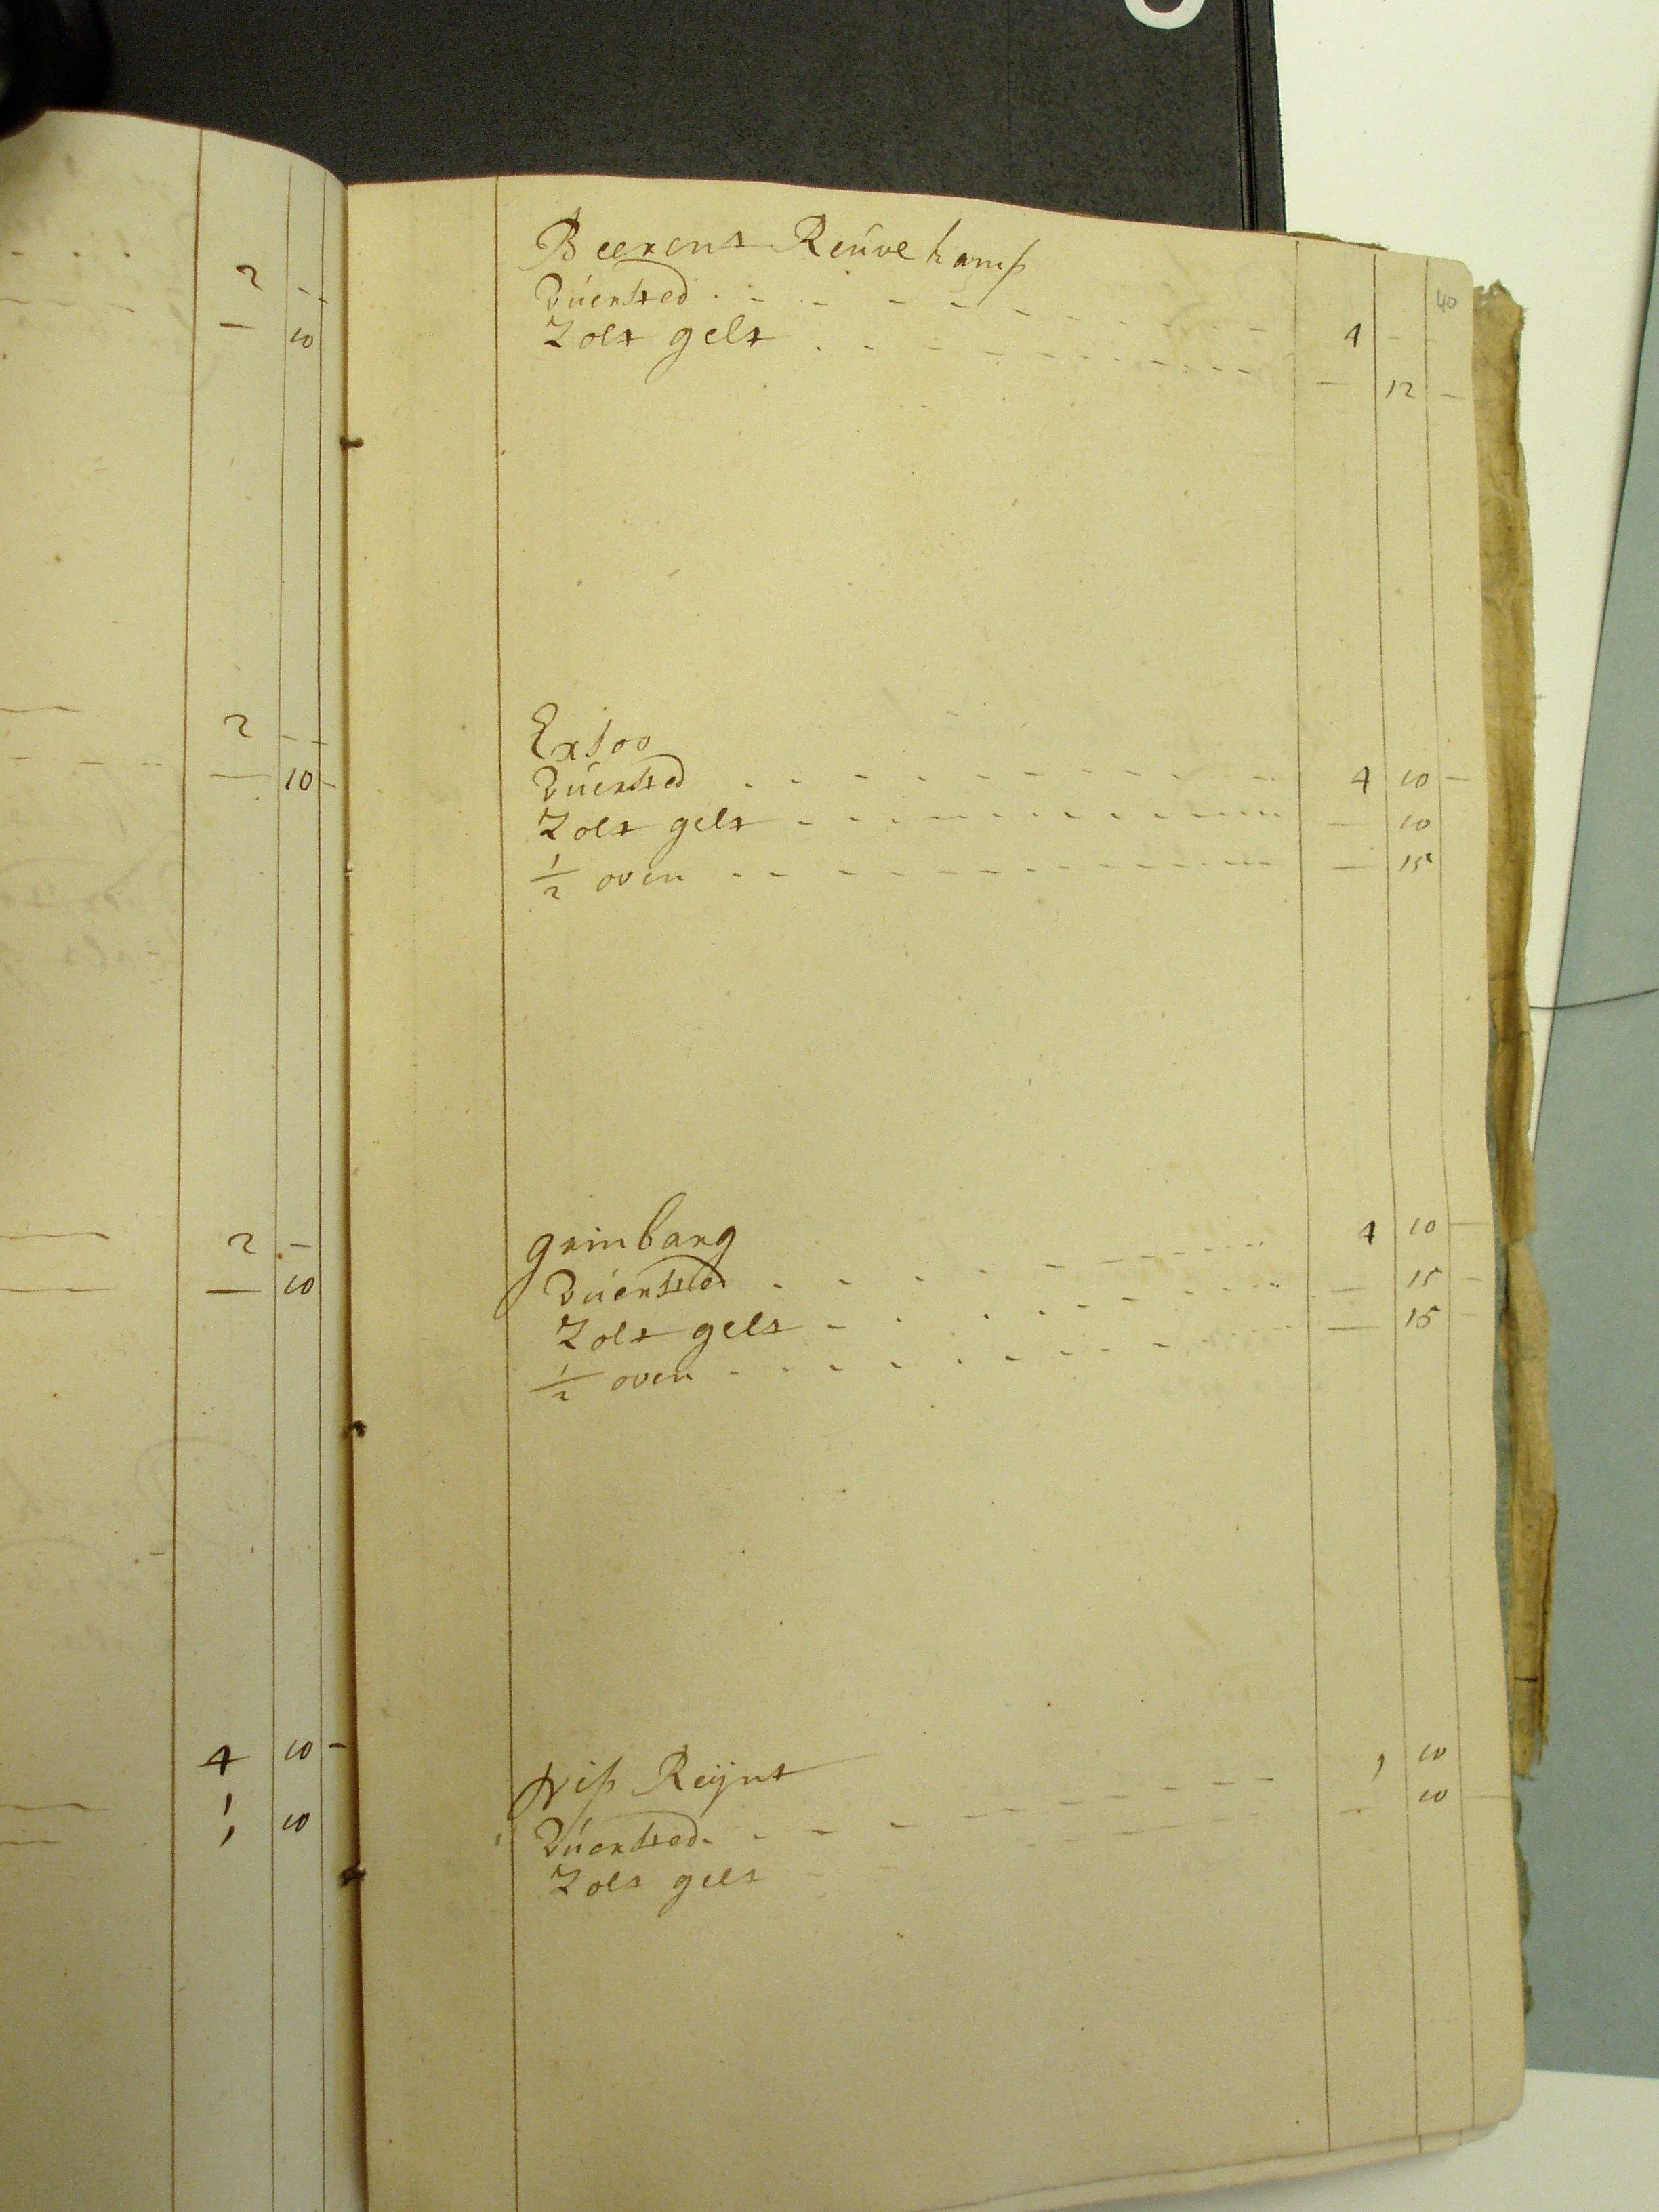 2 - -
- 10
2 - -
- 10 -
2 -
- 10
4 10 -
1 10
40
Beerent Reuvekamp
Vuersted . - - - - - - - - 4 - -
Zolt gelt . - - - - - - - - - 12 -
Extoo
Vuersted - - - - - - - - 4 10 -
Zolt gelt - - - - - - - - - 10
1/2 oven - - - - - - - - - 15
grinbarg
Vuersted - - - - - - - - 4 10 -
Zolt gelt - - - - - - - - - 15 -
1/2 oven - - - - - - - - - 15 -
Reijnt
Vuersted - - - - - - - 1 10
Zolt gelt - - - - 10 -